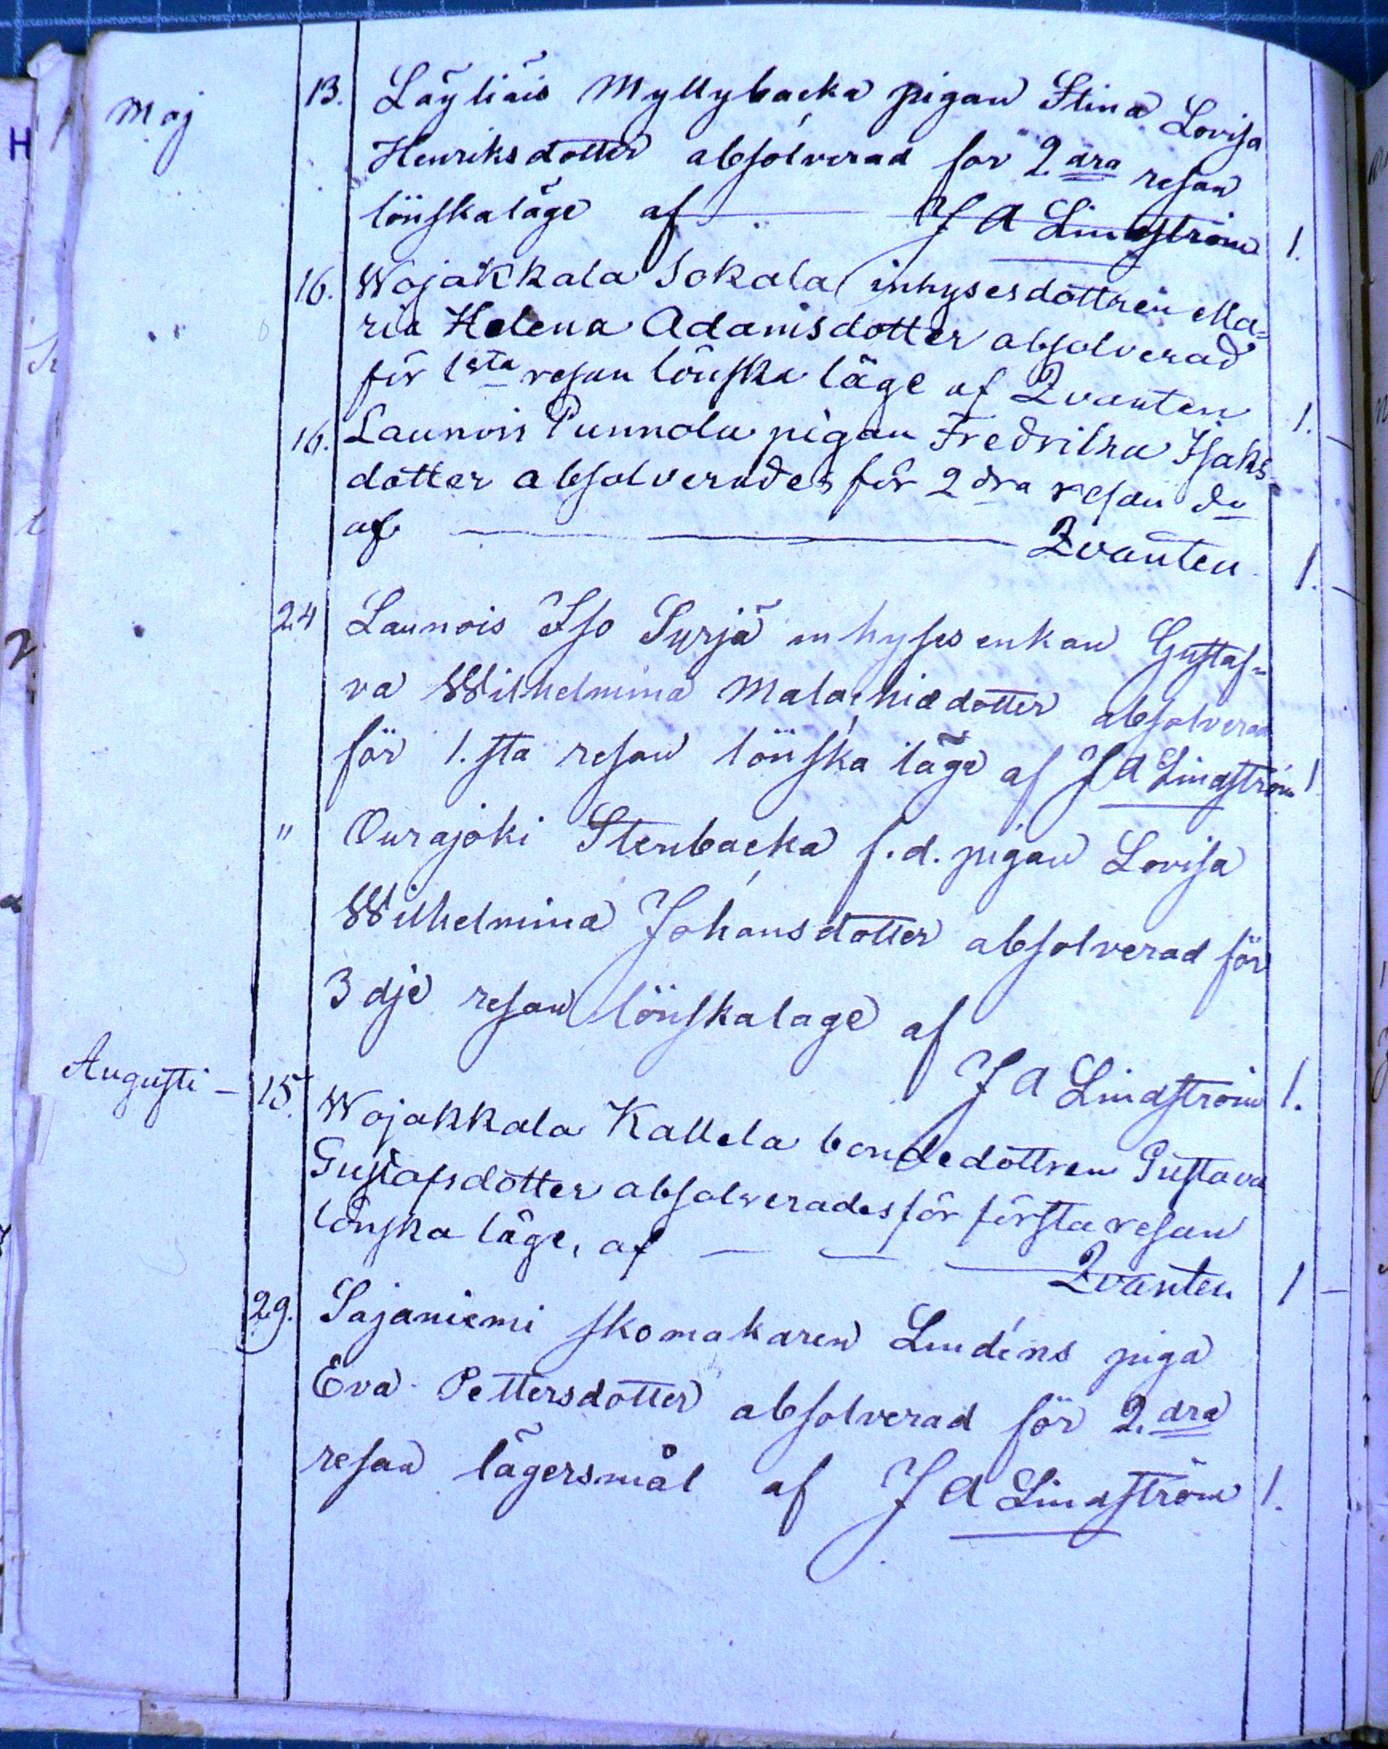 Maj 13. Läyliäis Myllybacka pigan Stina Lovisa
Henriksdotter absolverad för 2.dra resan
lönskaläge af J A Lindström 1.
16. Wojakkala Sokala inhysesdottren Ma=
ria Helena Adamsdotter absolverad
för 1sta resan lönska läge af Qvanten 1.
16. Launois Punnola pigan Fredrika Isaks=
dotter absolverades för 2dra resan do
af Qvanten 1.
24 Launois Iso Syrjä inhyses enkan Gustaf=
va Wilhelmina Malachiedotter absolverad
för 1.sta resan lönska läge af J A Lindström 1
" Ourajoki Stenbacka f.d. pigan Lovisa
Wilhelmina Johansdotter absolverad för
3dje resan lönskalage af
J A Lindström 1.
Augusti – 15. Wojakkala Kallela bondedottren Gustava
Gustafsdotter absolverades för första resan
lönska läge, af
Qvanten 1 –
29. Sajaniemi skomakaren Lindéns piga
Eva Pettersdotter absolverad för 2.dra
resan lägersmål af J A Lindström 1.